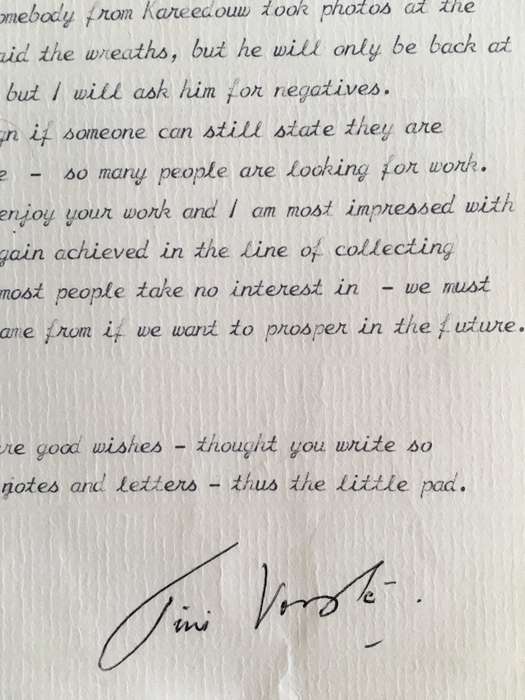 omebody from Kareedouw took photos at the
aid the wreaths, but he will only be back at
but I will ask him for negatives.
gn if someone can still state they are
e - so many people are looking for work.
enjoy your work and I am most impressed with
gain achieved in the line of collecting
most people take no interest in - we must
ame from if we want to prosper in the future.
re good wishes - thought you write so
notes and letters - thus the little pad.
Tini Vorster.